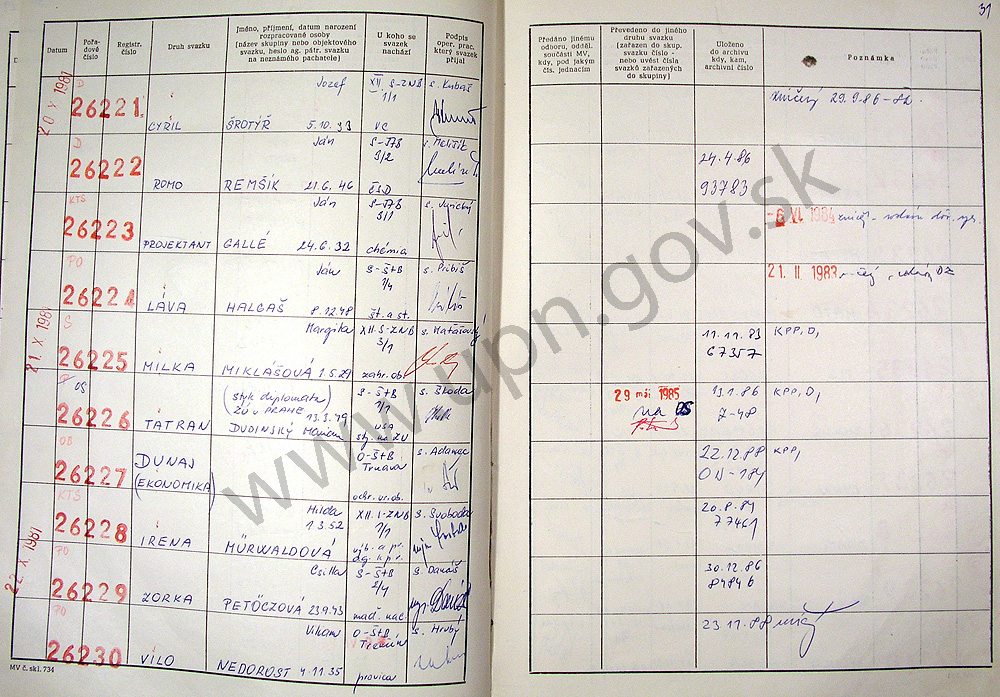 31
Datum
Pořadové číslo
Registr. číslo
Druh svazku
Jméno, příjmení, datum narození
rozpracované osoby
(název skupiny nebo objektového
svazku, heslo ag. pátr. svazku
na neznámého pachatele)
U koho se
svazek
nachází
Podpis
oper. prac.
který svazek
přijal
Předáno jinému
odboru, odděl.
součásti MV,
kdy, pod jakým
čís. jednacím
Převedeno do jiného
druhu svazku
(zařazen do skup.
svazku číslo -
nebo uvést čísla
svazků zařazených
do skupiny)
Uloženo
do archivu
kdy, kam,
archivní číslo
Poznámka
20 X 1981
D
26221
CYRIL
Jozef
ŠROTÝŘ 5.10.33
XII S-ZNB
1/1
VC
s. Kubaš
zničený 29.9.86
D
26222
ROMO
Ján
REMŠÍK 21.6.46
S-ŠTB
3/2
ČSD
s. Melišík
24.4.86
93783
KTS
26223
PROJEKTANT
Ján
GALLÉ 24.6.32
S-ŠTB
3/1
chémia
-6 VI. 1984
PO
26224
LÁVA
Ján
HALGAŠ 8.12.48
S-ŠTB
2/4
št. a st.
s. Pribiš
21. II 1983
21. X 1981
S
26225
MILKA
Margita
MIKLÁŠOVÁ 1.5.29
XII.S-ZNB
3/1
zahr. ob.
11.11.83
67357
KPP, D,
OS
26226
TATRAN
(styk diplomata
ZÚ v PRAHE 13.3.49
DUDINSKÝ
S-ŠTB
1/1
USA
sty. na ZÚ
s. Škoda
29 máj 1985
na OS
13.1.86
Z-48
KPP, D,
OB
26227
DUNAJ
(EKONOMIKA)
O-ŠTB
Trnava
ochr. vr. ob.
s. Adamec
22.12.88
OD-184
KPP,
KTS
26228
IRENA
Hilda
1.3.52
MÜRWALDOVÁ
XII.S-ZNB
1/1
s. Svoboda
20.8.84
77461
22. X 1981
PO
26229
ZORKA
Csilla
PETÖCZOVÁ 23.9.43
S-ŠTB
2/4
maď. nac.
s. Danáš
30.12.86
84846
PO
26230
VILO
Viliam
NEDOROST 4.11.35
O-ŠTB
Trenčín
s. Hrubý
23 11.88
MV č. skl. 734
www.upn.gov.sk